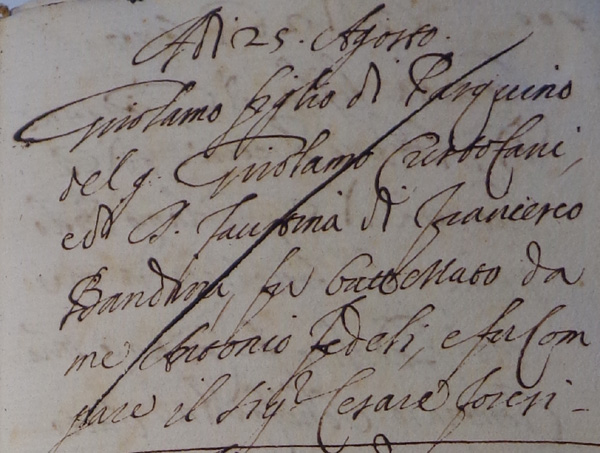 Adi 25. Agosto.
Girolamo figlio di Pasquino
del q. Girolamo
e di S. Faustina di Francesco
Bandini, fu battezzato da
me Antonio Fedeli, e fu Com
pare il Sig.r Cesare